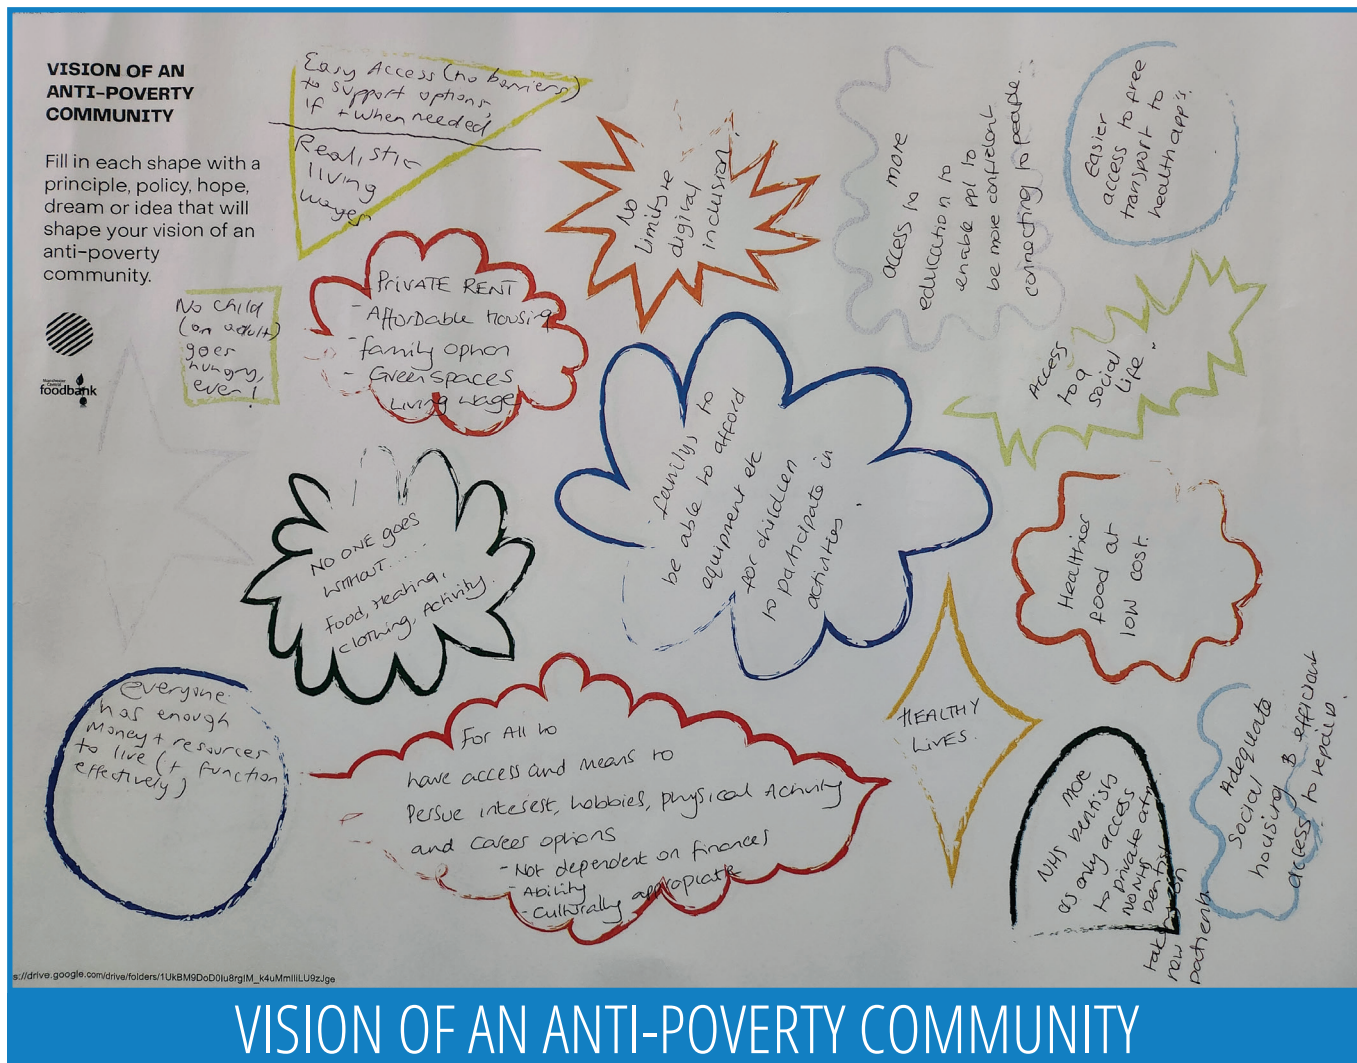 VISION OF AN
ANTI-POVERTY
COMMUNITY
Fill in each shape with a
principle, policy, hope,
dream or idea that will
shape your vision of an
anti-poverty
community.
Manchester
Central
foodbank
Easy Access (no barriers)
to support options,
if + when needed
Realistic
living
wages
No
limit/re
digital
inclusion.
access to more
education to
enable ppl to
be more confident
connecting to people...
Easier
access to free
transport to
health app's.
No child
(or adult)
goes
hungry,
ever!
- PRIVATE RENT
- Affordable Housing
- family option
- Green spaces
Living wage
Access
to a
social
life.
NO ONE goes
WITHOUT....
food, Heating,
clothing, Activity.
familys to
be able to afford
equipment etc
for children
to participate in
activities.
Healthier
food at
low cost.
everyone
has enough
money + resources
to live (+ function
effectively)
For All to
have access and means to
Persue interest, hobbies, physical Activity
and career options
- Not dependent on finances
- Ability
- Culturally appropiate
HEALTHY
LIVES.
NHS more
dentists
as only access
to private atm
No NHS
Dentist
taken on
new
patients
Adequate
social
housing & efficient
access to repairs.
s://drive.google.com/drive/folders/1UkBM9DoD0Iu8rgIM_k4uMmIIiLU9zJge
VISION OF AN ANTI-POVERTY COMMUNITY